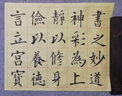 書之妙道
神彩為上
靜以修身
儉以養德
言立宮寶